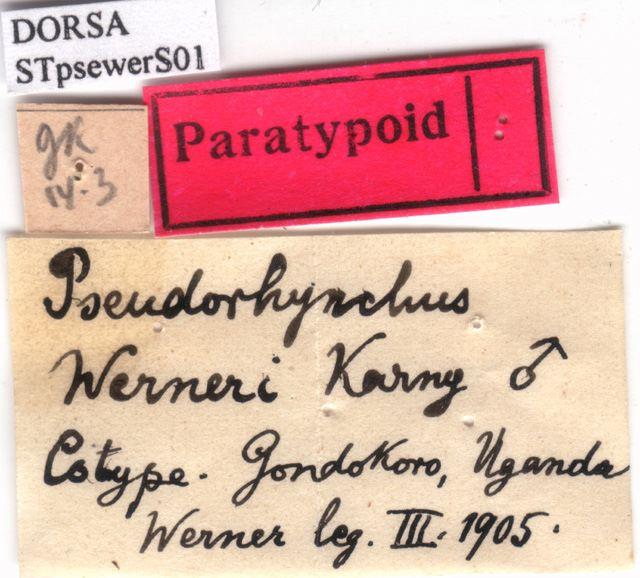 DORSA
STpsewerS01
gK
14.3
Paratypoid
Pseudorhynchus
Werneri Karny ♂
Cotype. Gondokoro, Uganda
Werner leg. III. 1905.